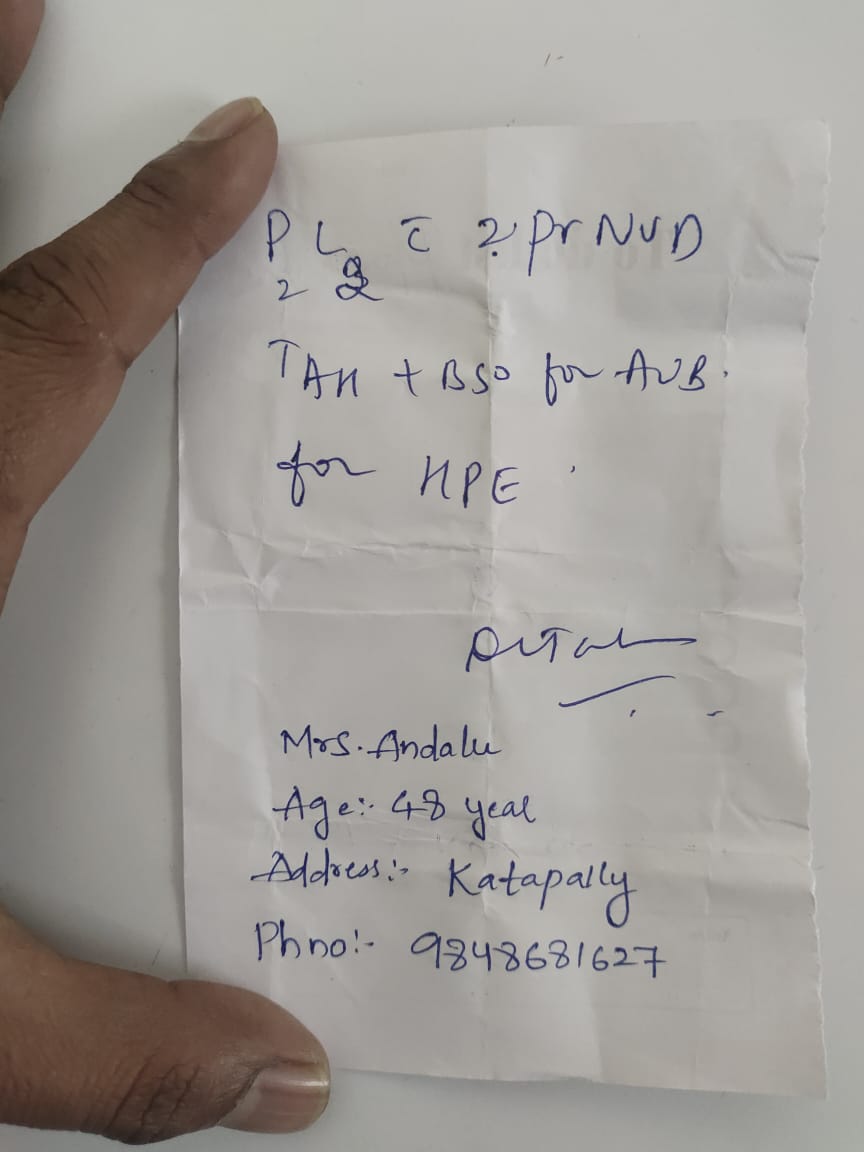 P2 L2 c̄ 2 Pr NVD
TAH + BSO for AUB.
for HPE
Mrs. Andalu
Age:- 48 year
Address:- Katapally
Ph no:- 9848681627